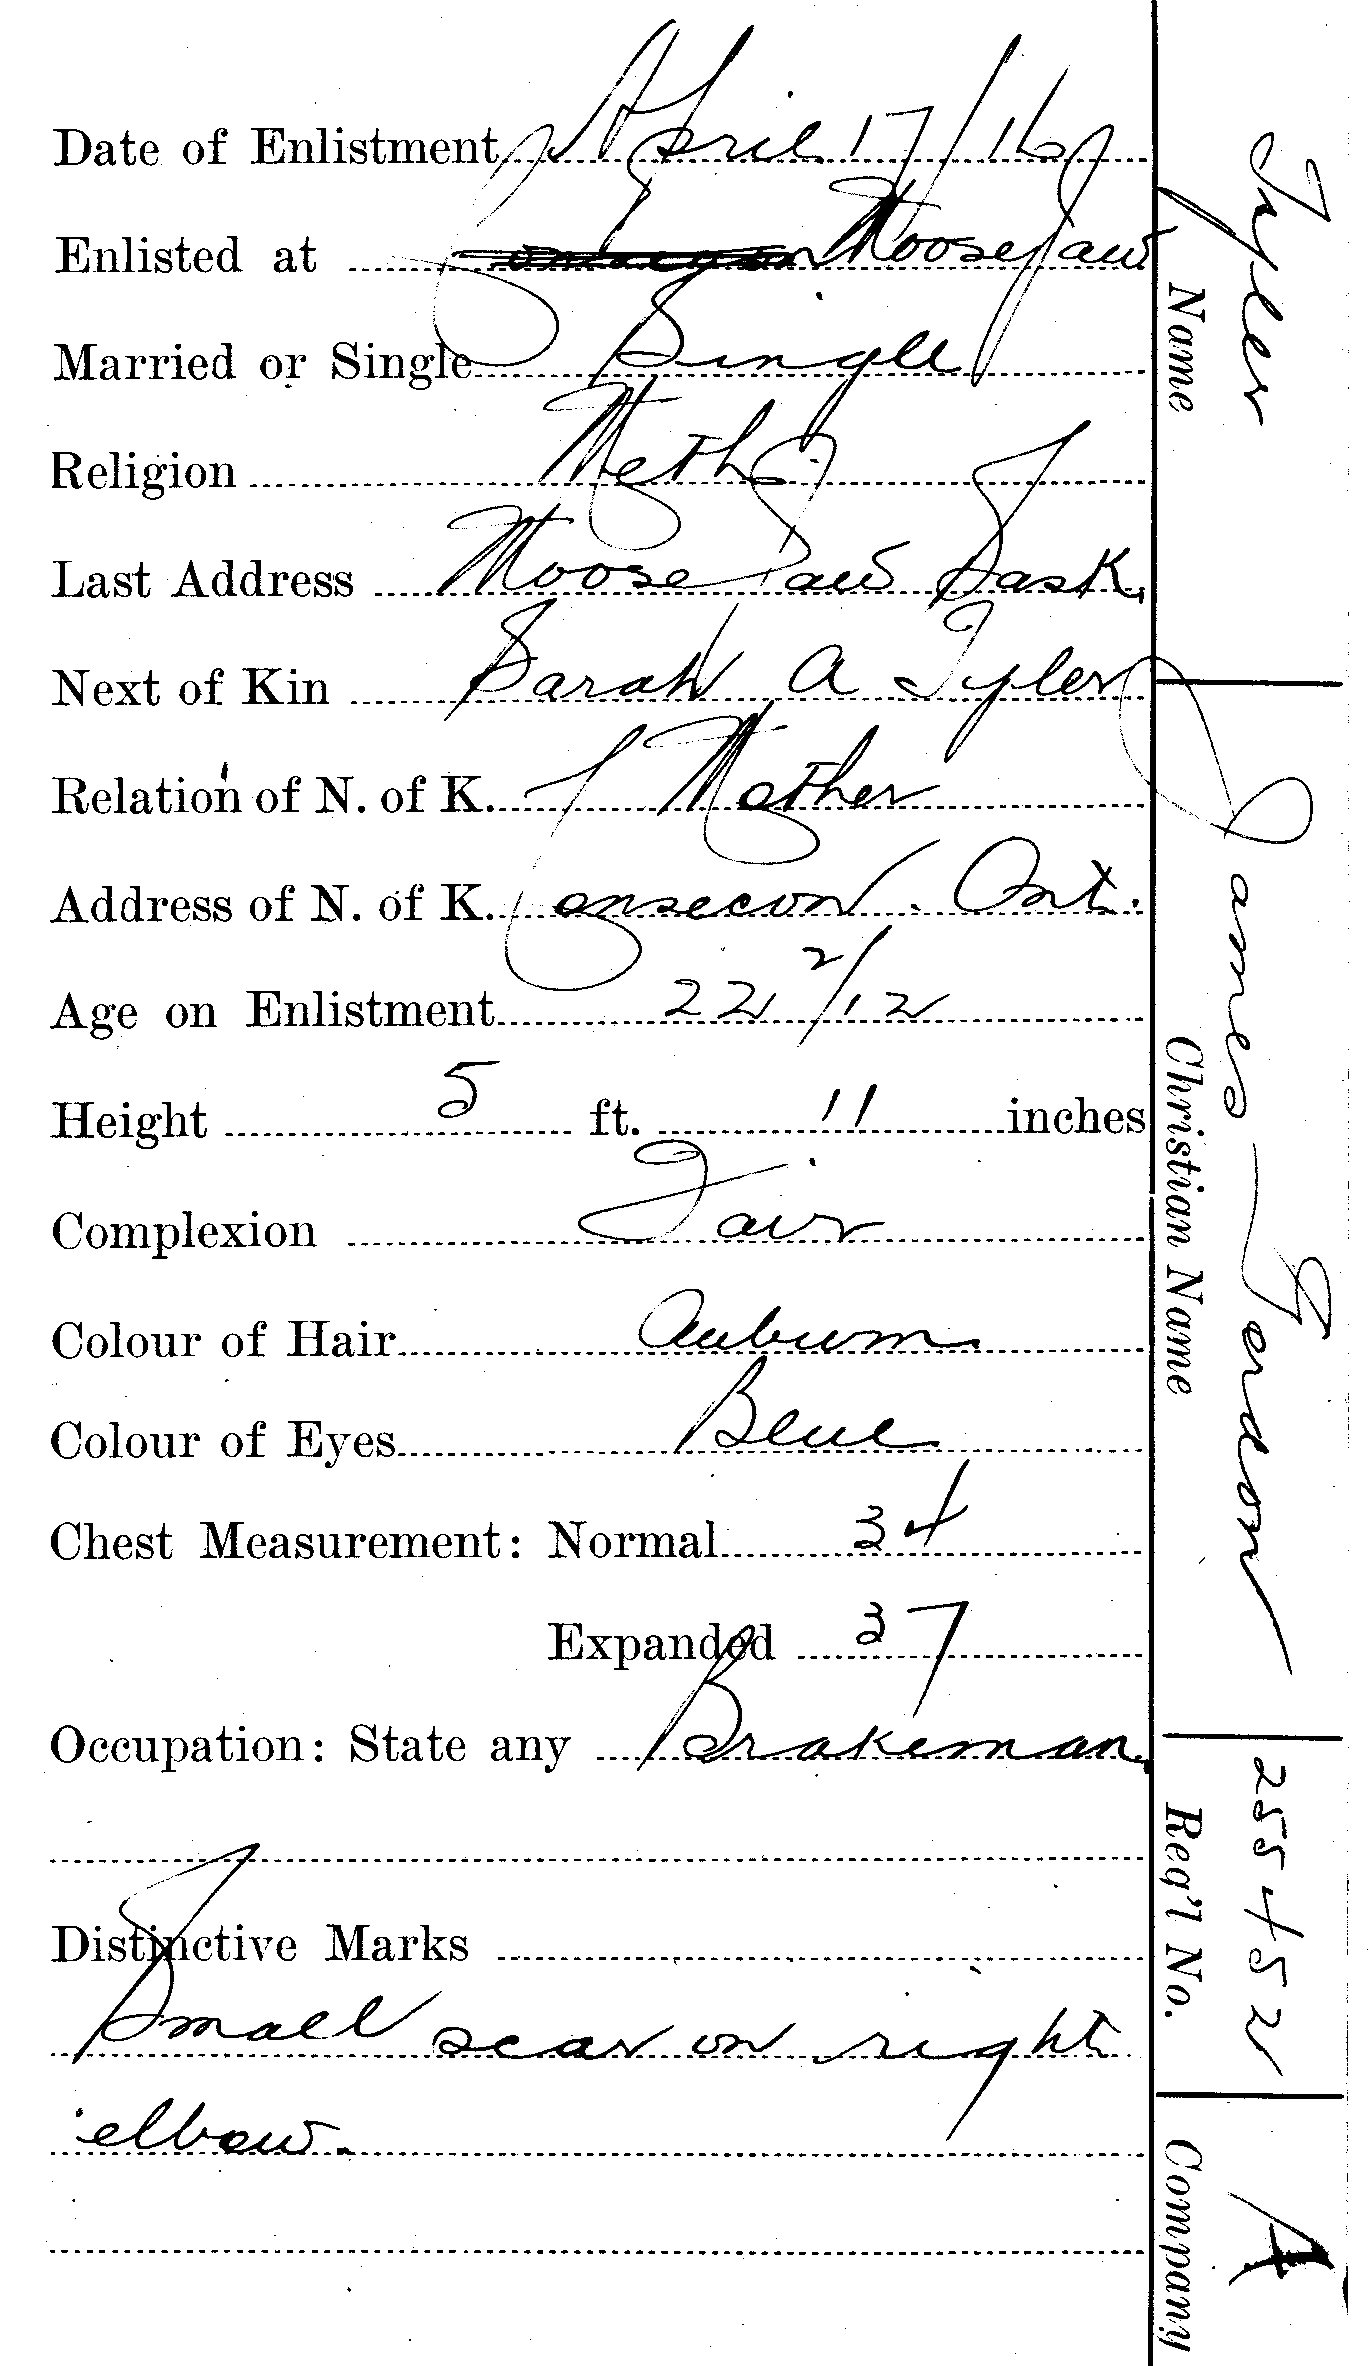 Date of Enlistment April 17/16
Enlisted at Moose Jaw
Married or Single Single
Religion Meth.
Last Address Moose Jaw Sask.
Next of Kin Sarah A Tyler
Relation of N. of K. Mother
Address of N. of K. Consecon. Ont.
Age on Enlistment 22 2/12
Height 5 ft. 11 inches
Complexion Fair
Colour of Hair Auburn
Colour of Eyes Blue
Chest Measurement: Normal 34
Expanded 37
Occupation: State any Brakeman.
Distinctive Marks
Small scar on right
elbow.
Tyler
Name
James Gordon
Christian Name
255452
Reg'l No.
A
Company